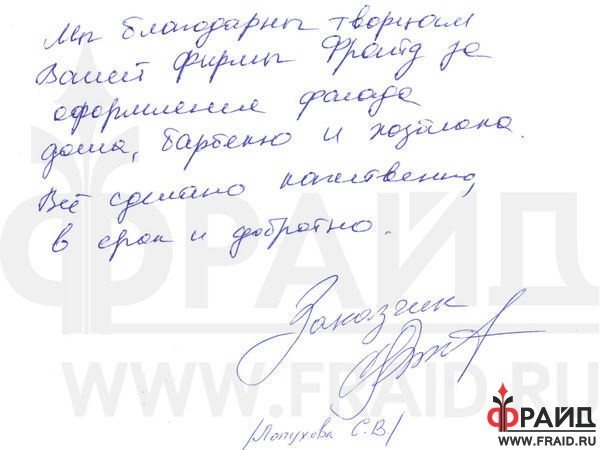 Мы благодарны творцам
Вашей фирмы Фрайд за
оформление фасада
дома, барбекю и хозблока.
Всё сделано качественно,
в срок и добротно.
Заказчик
/Лопухова С.В/
ФРАЙД
WWW.FRAID.RU
ФРАЙД
WWW.FRAID.RU